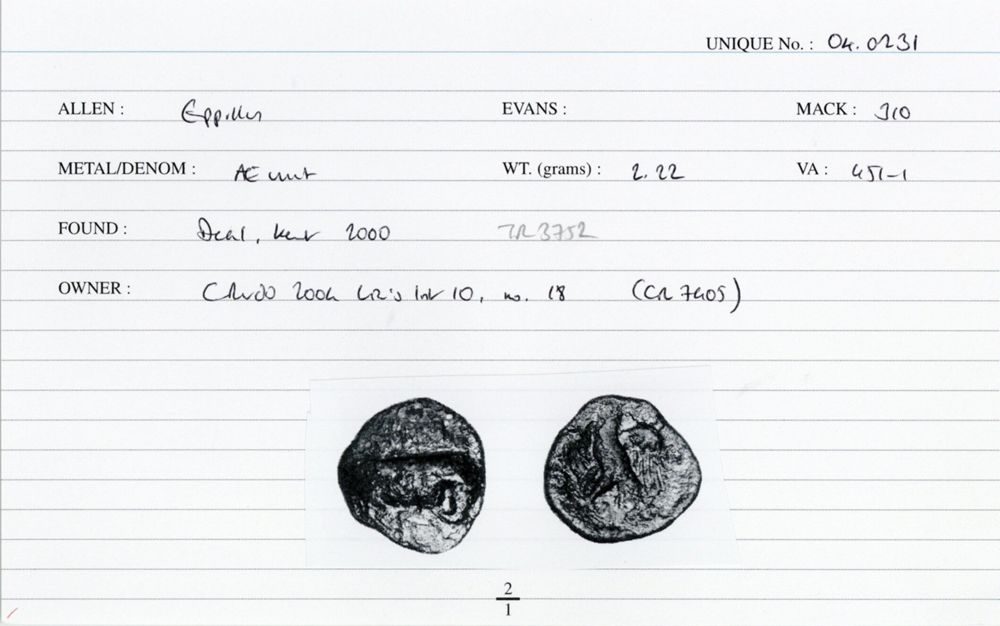 UNIQUE No. : 04.0231
ALLEN : Eppillus EVANS : MACK : 310
METAL/DENOM : AE unit WT. (grams) : 2.22 VA : 451-1
FOUND : Deal, Kent 2000 TR3752
OWNER : 2004 10, no. 18 (CR 7405)
2
1